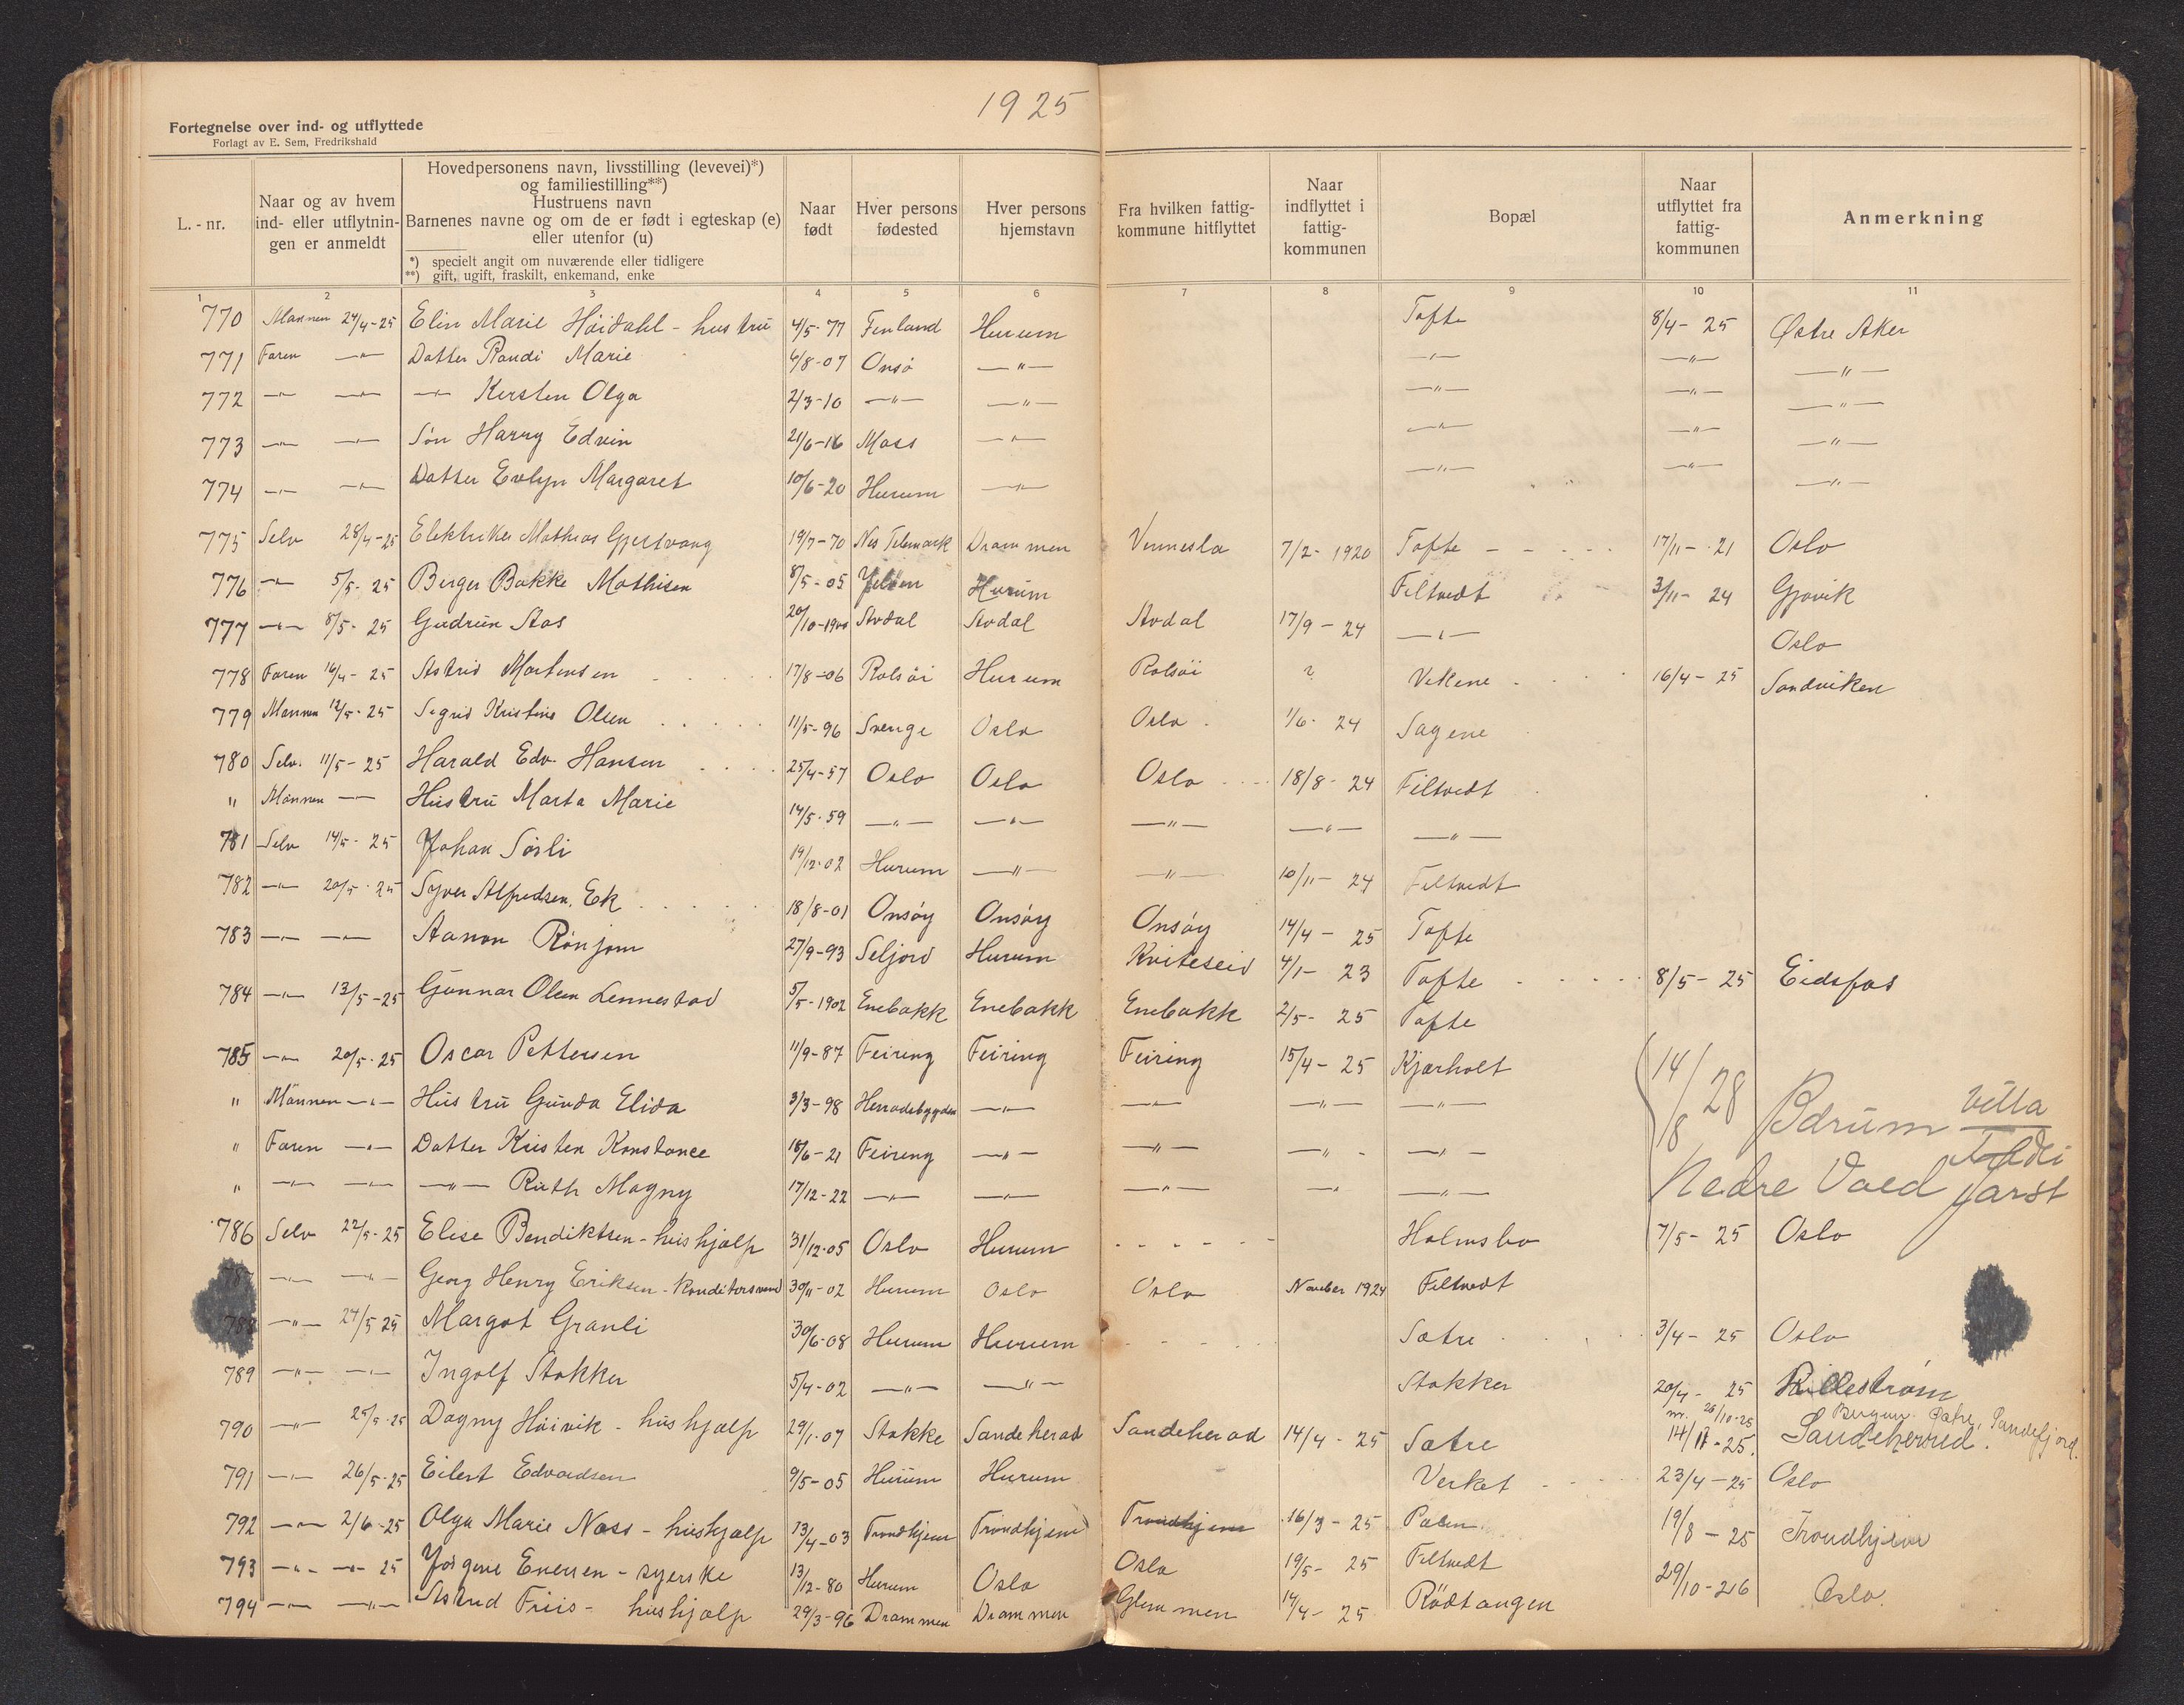 1925
Fortegnelse over ind- og utflyttede
Forlagt av E. Sem, Fredrikshald
L.-nr.
Naar og av hvem ind- eller utflytnin-gen er anmeldt
Hovedpersonens navn, livsstilling (levevei)*)
og familiestilling**)
Hustruens navn
Barnenes navne og om de er født i egteskap (e)
eller utenfor (u)
*) specielt angit om nuværende eller tidligere
**) gift, ugift, fraskilt, enkemand, enke
Naar født
Hver persons fødested
Hver persons hjemstavn
Fra hvilken fattig-kommune hitflyttet
Naar indflyttet i fattig-kommunen
Bopæl
Naar utflyttet fra fattig-kommunen
Anmerkning
1 2 3 4 5 6 7 8 9 10 11
770 Mannen 24/4-25 Elin Marie Høidahl - hustru 4/5-77 Finland Hurum Tofte 8/4-25 Østre Aker
771 Faren -"- Datter Randi Marie 4/8-07 Onsø -"- -"- -"- -"-
772 -"- -"- -"- Kirsten Olga 2/3-10 -"- -"- -"- -"- -"-
773 -"- -"- Søn Harry Edvin 21/6-16 Moss -"- -"- -"- -"-
774 -"- -"- Datter Evelyn Margaret 10/6-20 Hurum -"- -"- -"- -"-
775 Selv 28/4-25 Elektriker Mathias Gjertvang 19/7-70 Nes Telemark Drammen Vennesla 7/2-1920 Tofte - - - - - 17/11-21 Oslo
776 -"- 5/5-25 Birger Bakke Mathisen 8/5-05 Hurum Filtvedt 3/11-24 Gjøvik
777 -"- 8/5-25 Gudrun Aas 20/10-1900 Avdal Avdal Avdal 17/9-24 -"- Oslo
778 Faren 16/4-25 Astrid Martinsen 17/8-06 Rolsøi Hurum Rolsøi ? Vikene 16/4-25 Sandviken
779 Mannen 12/5-25 Sigrid Kristine Olsen 11/5-96 Sverige Oslo Oslo 1/6-24 Sagene
780 Selv. 11/5-25 Harald Edv. Hansen 25/4-57 Oslo Oslo Oslo 18/8-24 Filtvedt
" Mannen -"- Hustru Marta Marie 14/5-59 -"- -"- -"- -"- -"-
781 Selv 14/5-25 Johan Sørli 19/12-02 Hurum -"- -"- 10/11-24 Filtvedt
782 -"- 20/5-25 Syver Alfredsen, Ek 18/8-01 Onsøy Onsøy Onsøy 14/4-25 Tofte
783 -"- -"- Aanon Rønjom 27/9-93 Seljord Hurum Kviteseid 4/1-23 Tofte 8/5-25 Eidsfos
784 -"- 13/5-25 Gunnar Olsen Lennestad 5/5-1902 Enebakk Enebakk Enebakk 2/5-25 Tofte
785 -"- 20/5-25 Oscar Pettersen 11/9-87 Feiring Feiring Feiring 15/4-25 Kjærholt 14/8 28 Bærum Villa
" Mannen -"- Hustru Gunda Elida 3/3-98 Herradsbygden -"- -"- -"- -"-
" Faren -"- Datter Kirsten Konstance 18/6-21 Feiring -"- -"- -"- -"-
" -"- -"- -"- Ruth Magny 17/12-22 -"- -"- -"- -"- -"- Nedre
786 Selv 22/5-25 Elise Bendiktsen - hushjælp 31/12-05 Oslo Hurum - - - - - - Holmsbo 7/5-25 Oslo
787 -"- -"- Georg Henry Eriksen - Konditorsvend 30/11-02 Hurum Oslo Oslo November 1924 Filtvedt
788 -"- 27/5 25 Margot Granli 30/6-08 Hurum Hurum - - - - Sætre 3/4-25 Oslo
789 -"- -"- Ingolf Stokker 5/4-02 -"- -"- Stokker 20/4-25 Lillestrøm
26/10-25 Sætre, Sandefjord.
790 -"- 25/5-25 Dagny Høivik - hushjælp 29/1-07 Stokke Sandeherad Sandeherad 14/4-25 Sætre 14/11-25. Sandeherred.
791 -"- 26/5-25 Eilert Edvardsen 9/5-05 Hurum Hurum Verket 23/4-25 Oslo
792 -"- 2/6-25 Olga Marie Næss - hushjælp 13/4-03 Trondhjem Trondhjem Trondhjem 16/3-25 19/8-25 Trondhjem
793 -"- -"- 25 Jørgine Eversen - syerske 13/12-80 Hurum Oslo Oslo 19/5-25 Filtvedt
794 -"- -"- Astrid Friis - hushjælp 29/3-96 Drammen Drammen Glemmen 14/4-25 Rødtangen 29/10-26 Oslo.